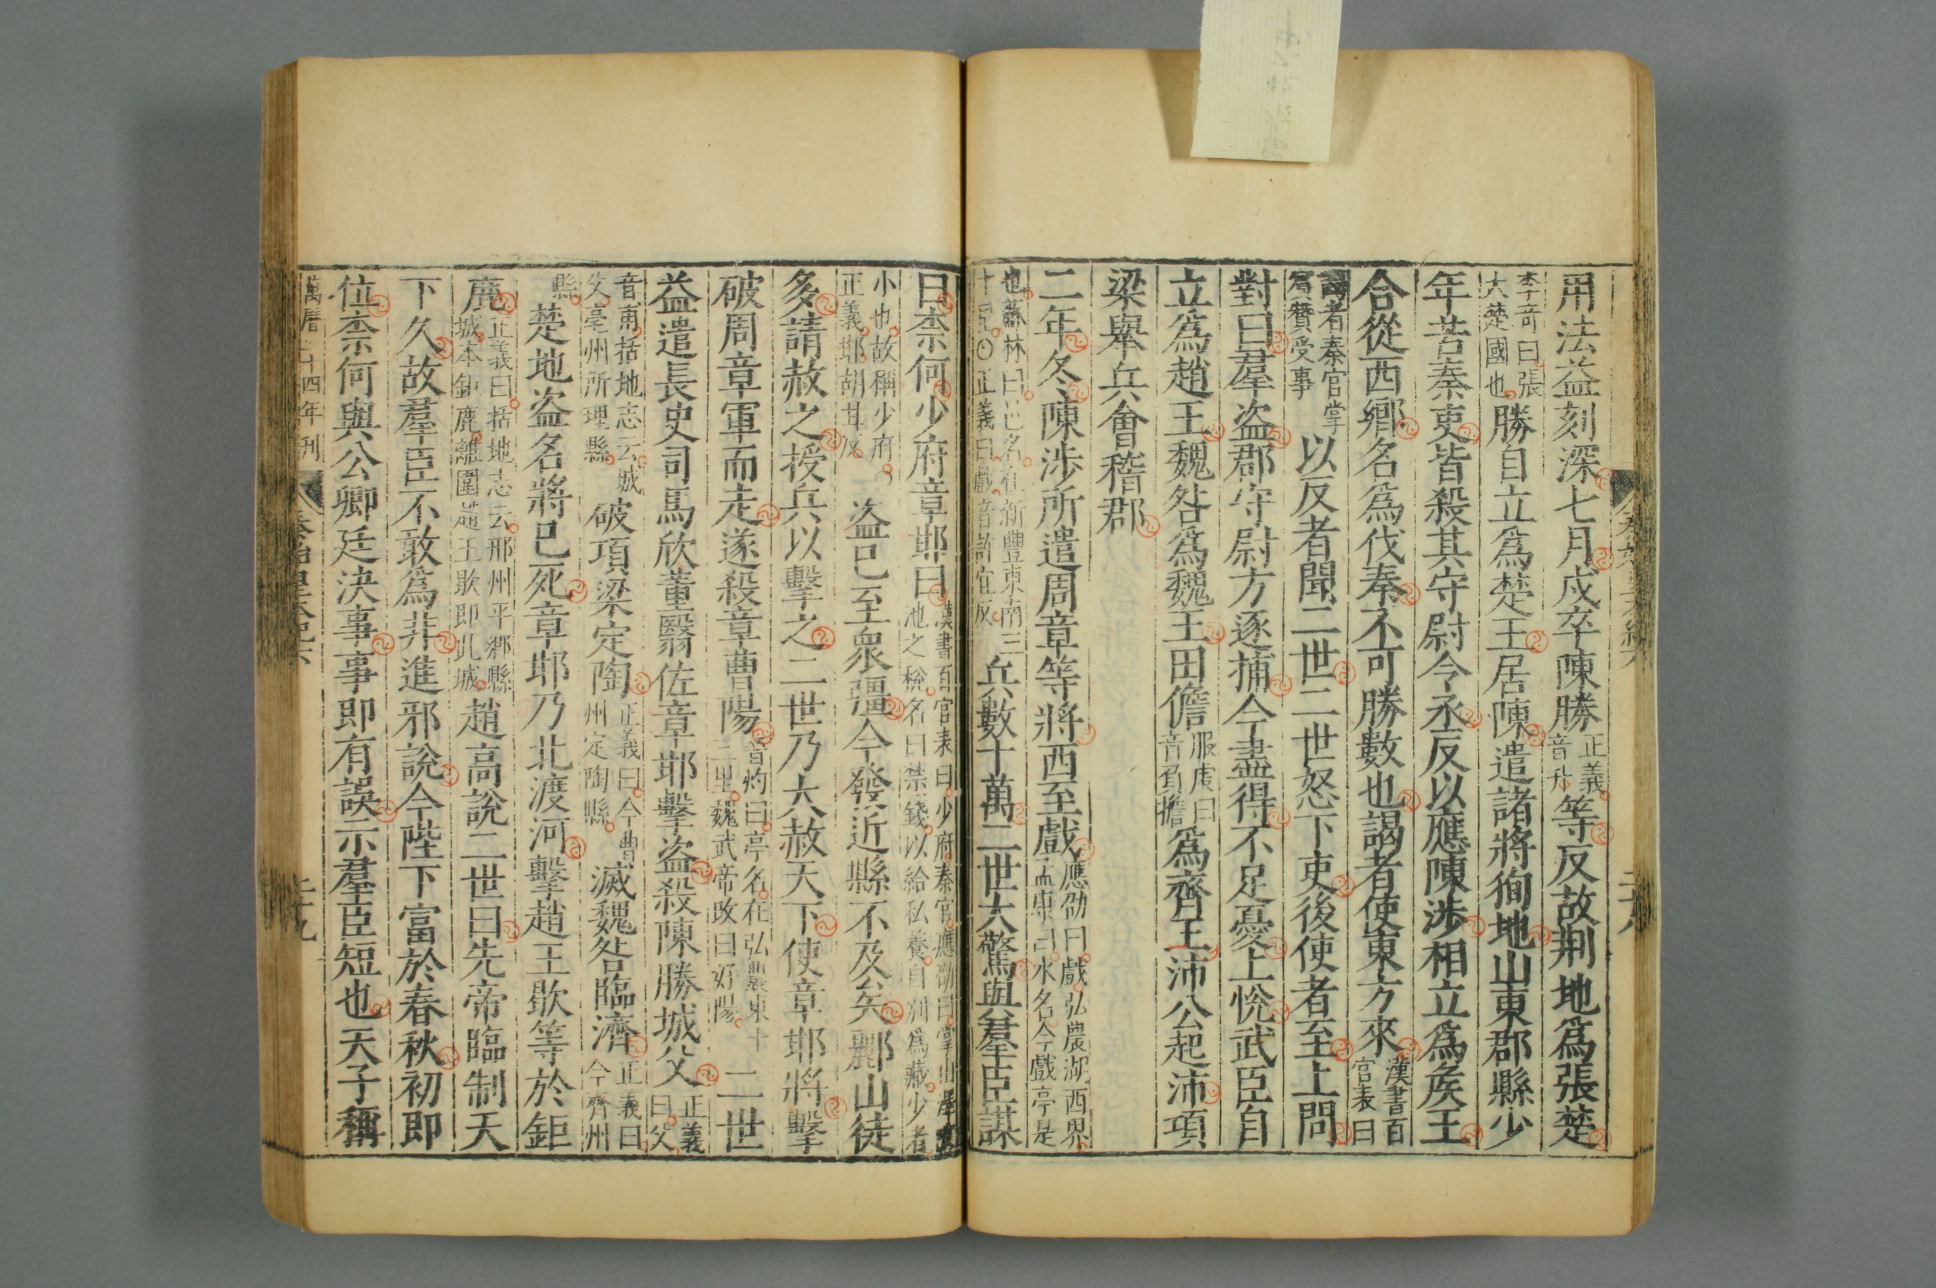 用法益刻深七月戍卒陳勝正義音升等反故荆地爲張楚
李奇曰張大楚國也勝自立爲楚王居陳遣諸將徇地山東郡縣少
年苦秦吏皆殺其守尉令丞反以應陳涉相立爲矦王
合從西鄉名爲伐秦不可勝數也謁者使東方來漢書百官表曰
謁者秦官掌賔贊受事以反者聞二世二世怒下吏後使者至上問
對曰羣盗郡守尉方逐捕今盡得不足憂上悅武臣自
立爲趙王魏咎爲魏王田儋服虔曰音負擔爲齊王沛公起沛項
梁舉兵會稽郡
二年冬陳涉所遣周章等將西至戲應劭曰戲弘農湖西界孟康曰水名今戲亭是
也蘇林曰邑名在新豐東南三十里〇正義曰戲音許宜反兵數十萬二世大驚與羣臣謀
曰柰何少府章邯曰漢書百官表曰少府秦官應劭曰掌山澤池之稅名曰禁錢以給私養自別爲藏少者
小也故稱少府正義邯胡甘反盗已至衆彊今發近縣不及矣酈山徒
多請赦之授兵以擊之二世乃大赦天下使章邯將擊
破周章軍而走遂殺章曹陽晉灼曰亭名在弘農東十三里魏武帝改曰好陽二世
益遣長史司馬欣董翳佐章邯擊盗殺陳勝城父正義曰父
音甫括地志云城父亳州所理縣破項梁定陶正義曰今曹州定陶縣滅魏咎臨濟正義曰今齊州
縣楚地盗名將已死章邯乃北渡河擊趙王歇等於鉅
鹿正義曰括地志云邢州平鄉縣城本鉅鹿離圍趙王歇即此城趙高說二世曰先帝臨制天
下久故羣臣不敢爲非進邪說今陛下富於春秋初即
位柰何與公卿廷决事事即有誤示羣臣短也天子稱
萬曆二十四年刋 秦始皇本紀六 二十九